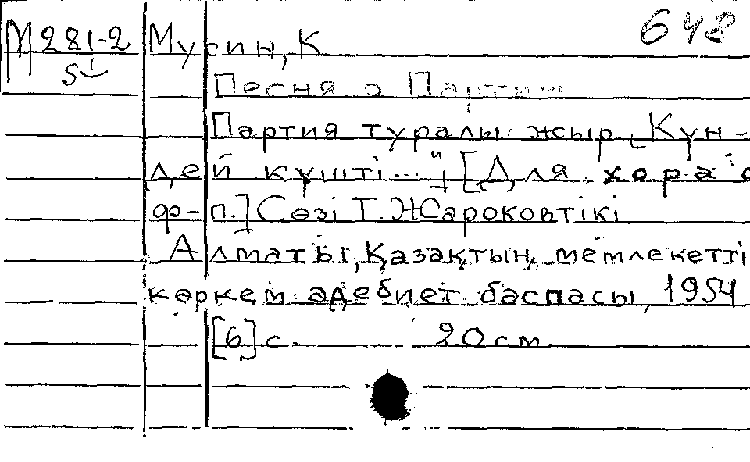 М281-2 Мусин, К 648
5
Песня о Партии
Партия туралы жыр „Күн-
дей күшті..."; [Для хора с
ф-п.] Сөзі Т. Жароковтікі
Алматы, Қазақтың мемлекетті
көркем әдебиет баспасы, 1954
[6] с. 20 см